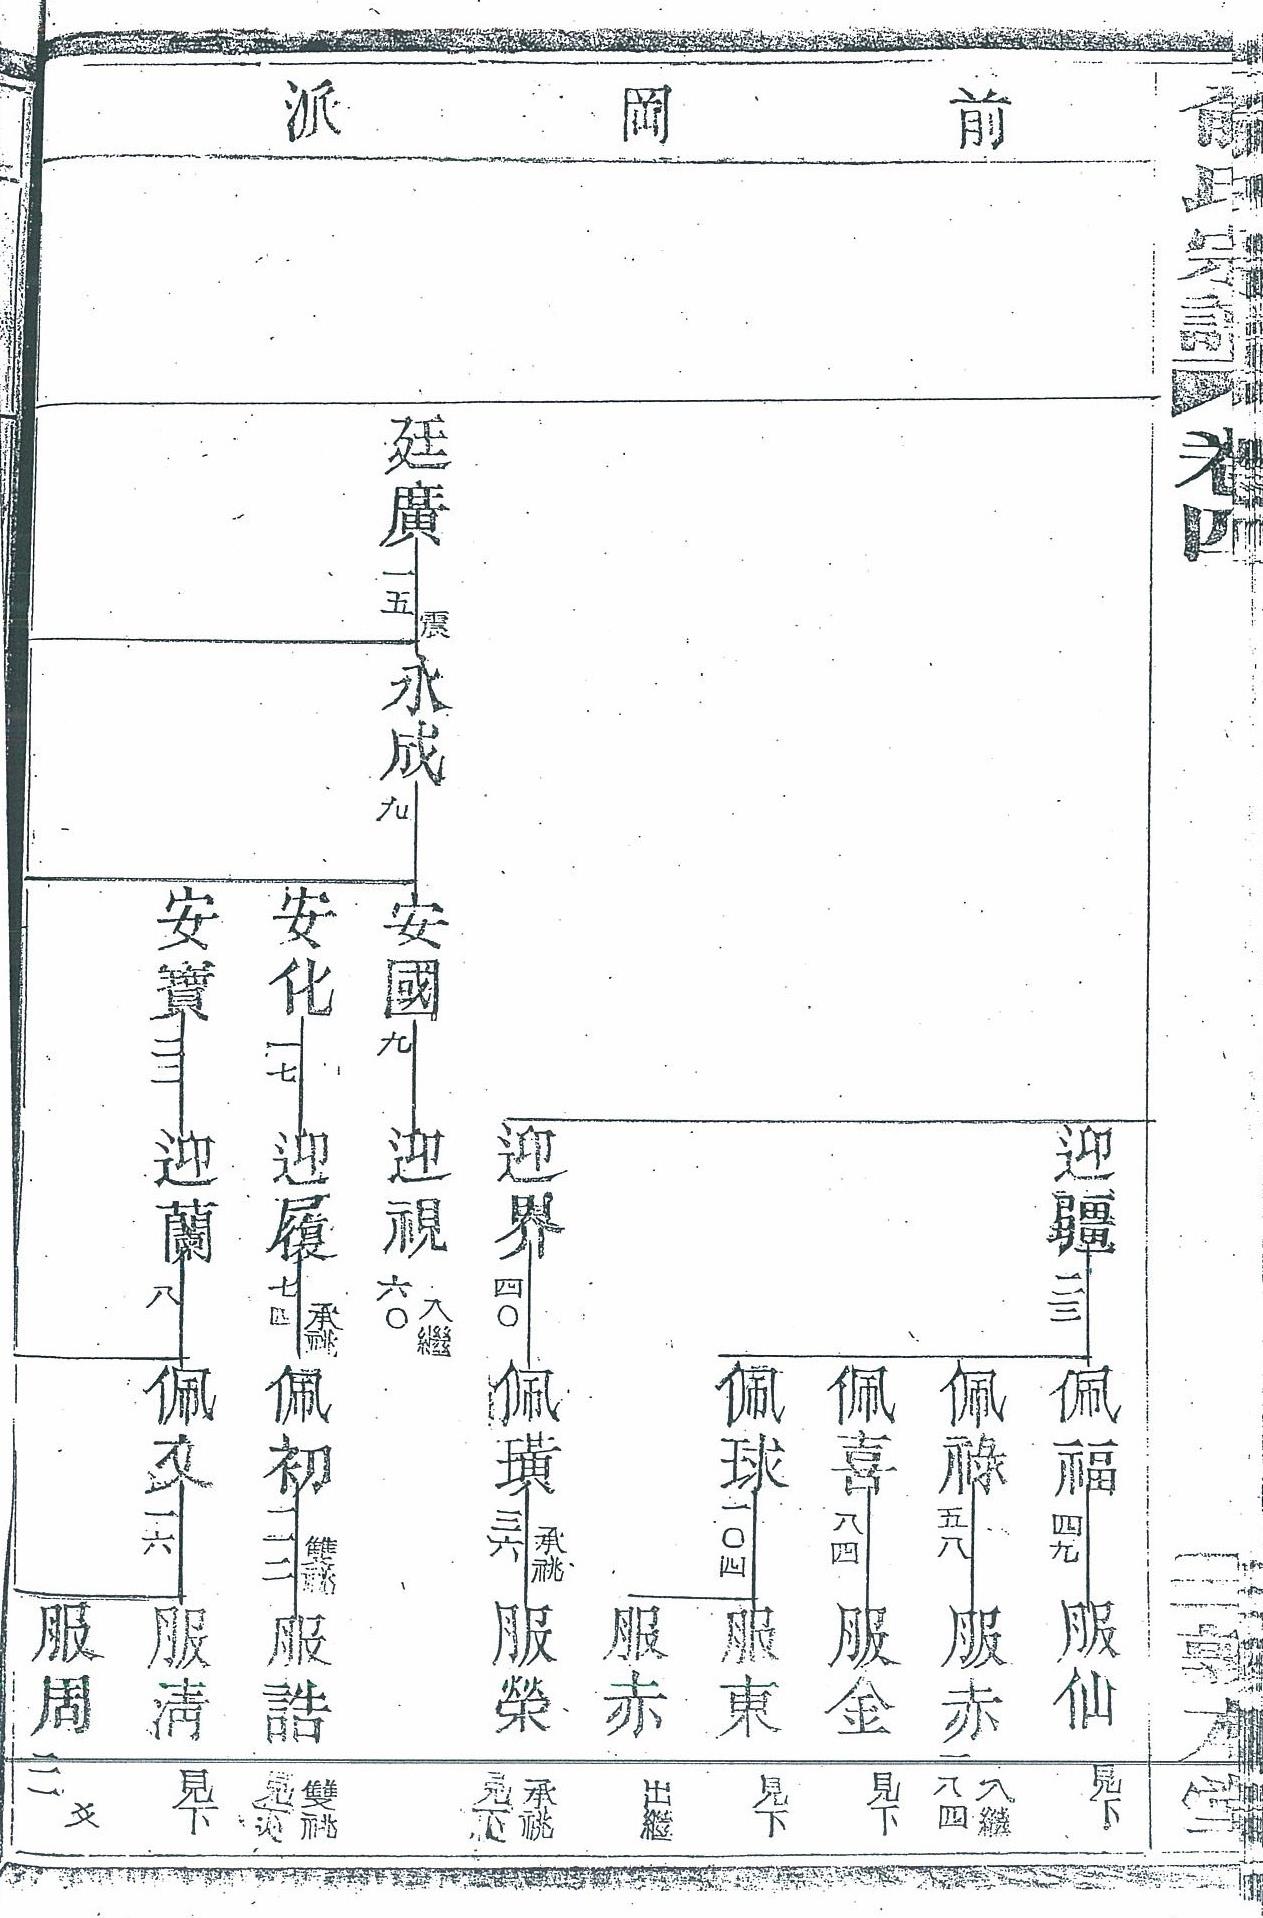 前岡派
卷四
廷廣 一五 震
永成 九
安國 九
安化 一七
安寶 二三
迎疆 二三
迎界 四〇
迎視 六〇 入繼
迎履 七四 承祧
迎蘭 八
佩福 四九
佩祿 五八
佩喜 八四
佩球 一〇四
佩璜 三六 承祧
佩初 二二 雙祧
佩文 一六
服仙 見下
服赤 一八四 入繼
服金 見下
服東 見下
服赤 出繼
服榮 承祧 見下
服誥 雙祧
服清 見下
服周 二二